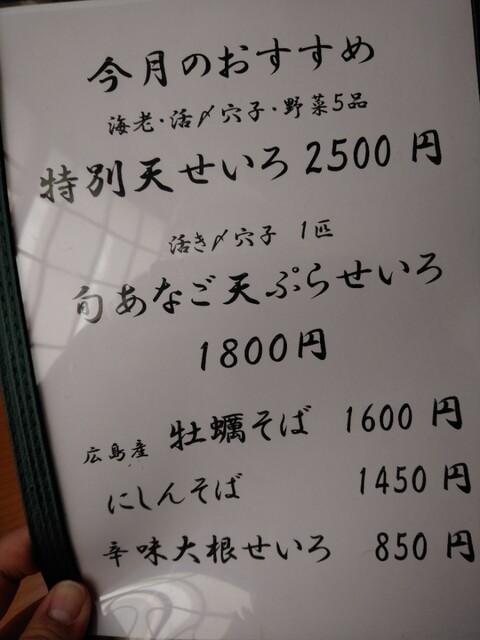 今月のおすすめ
海老・活〆穴子・野菜5品
特別天せいろ2500円
活き〆穴子 1匹
旬あなご天ぷらせいろ
1800円
広島産 牡蠣そば 1600円
にしんそば 1450円
辛味大根せいろ 850円